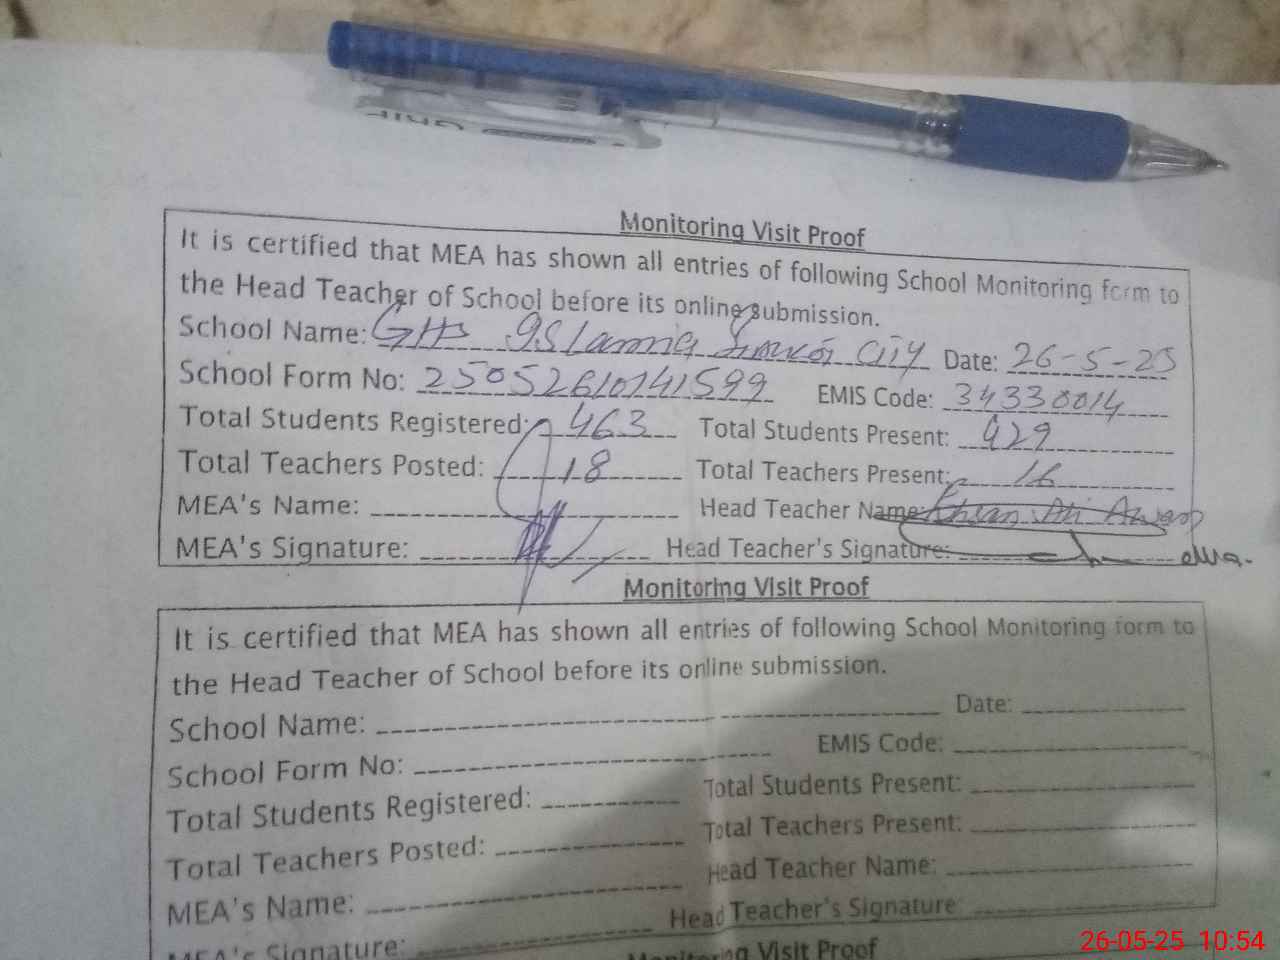 Monitoring Visit Proof
It is certified that MEA has shown all entries of following School Monitoring form to
the Head Teacher of School before its online submission.
School Name: GHS Islamia City Date: 26-5-25
School Form No: 25052610141599 EMIS Code: 34330014
Total Students Registered: 463 Total Students Present: 429
Total Teachers Posted: 18 Total Teachers Present: 16
MEA's Name: Head Teacher Name: Ali Awan
MEA's Signature: Head Teacher's Signature:
Monitoring Visit Proof
It is certified that MEA has shown all entries of following School Monitoring form to
the Head Teacher of School before its online submission.
School Name: Date:
School Form No: EMIS Code:
Total Students Registered: Total Students Present:
Total Teachers Posted: Total Teachers Present:
MEA's Name: Head Teacher Name:
MEA's Signature: Head Teacher's Signature:
Monitoring Visit Proof
26-05-25 10:54